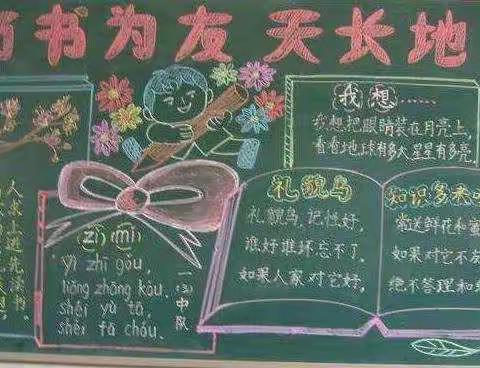 书为友 天长地
我想……
我想把眼睛装在月亮上,
看看地球有多大星星有多亮。
礼貌鸟
礼貌鸟,记性好,
谁好谁坏忘不了,
如果人家对它好,
知识多来
常送鲜花和
如果对它不
绝不答理和
zì mí
yì zhī gǒu,
liǎng zhāng kǒu,
shéi yù tā,
shéi fā chóu.
一(3)中队
人求上进先读书。